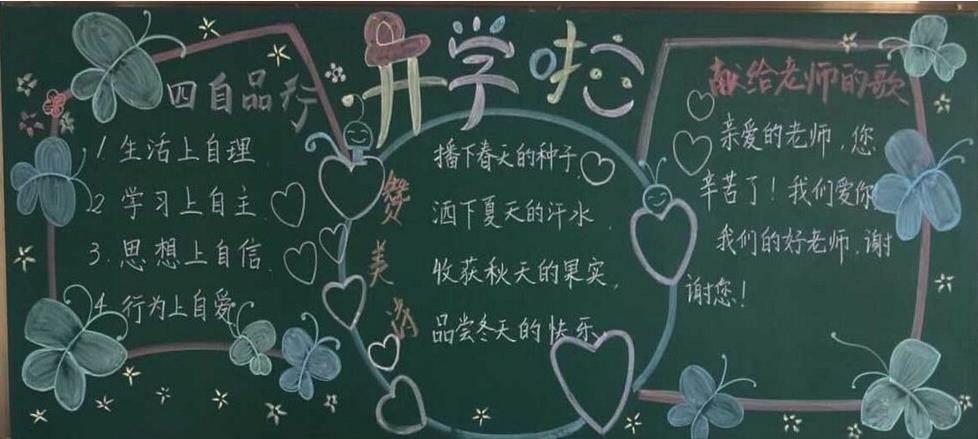 开学啦
四自品行
1. 生活上自理
2 学习上自主
3. 思想上自信
4. 行为上自爱
赞美
播下春天的种子
洒下夏天的汗水
收获秋天的果实
品尝冬天的快乐
献给老师的歌
亲爱的老师，您
辛苦了！我们爱你
我们的好老师，谢
谢您！